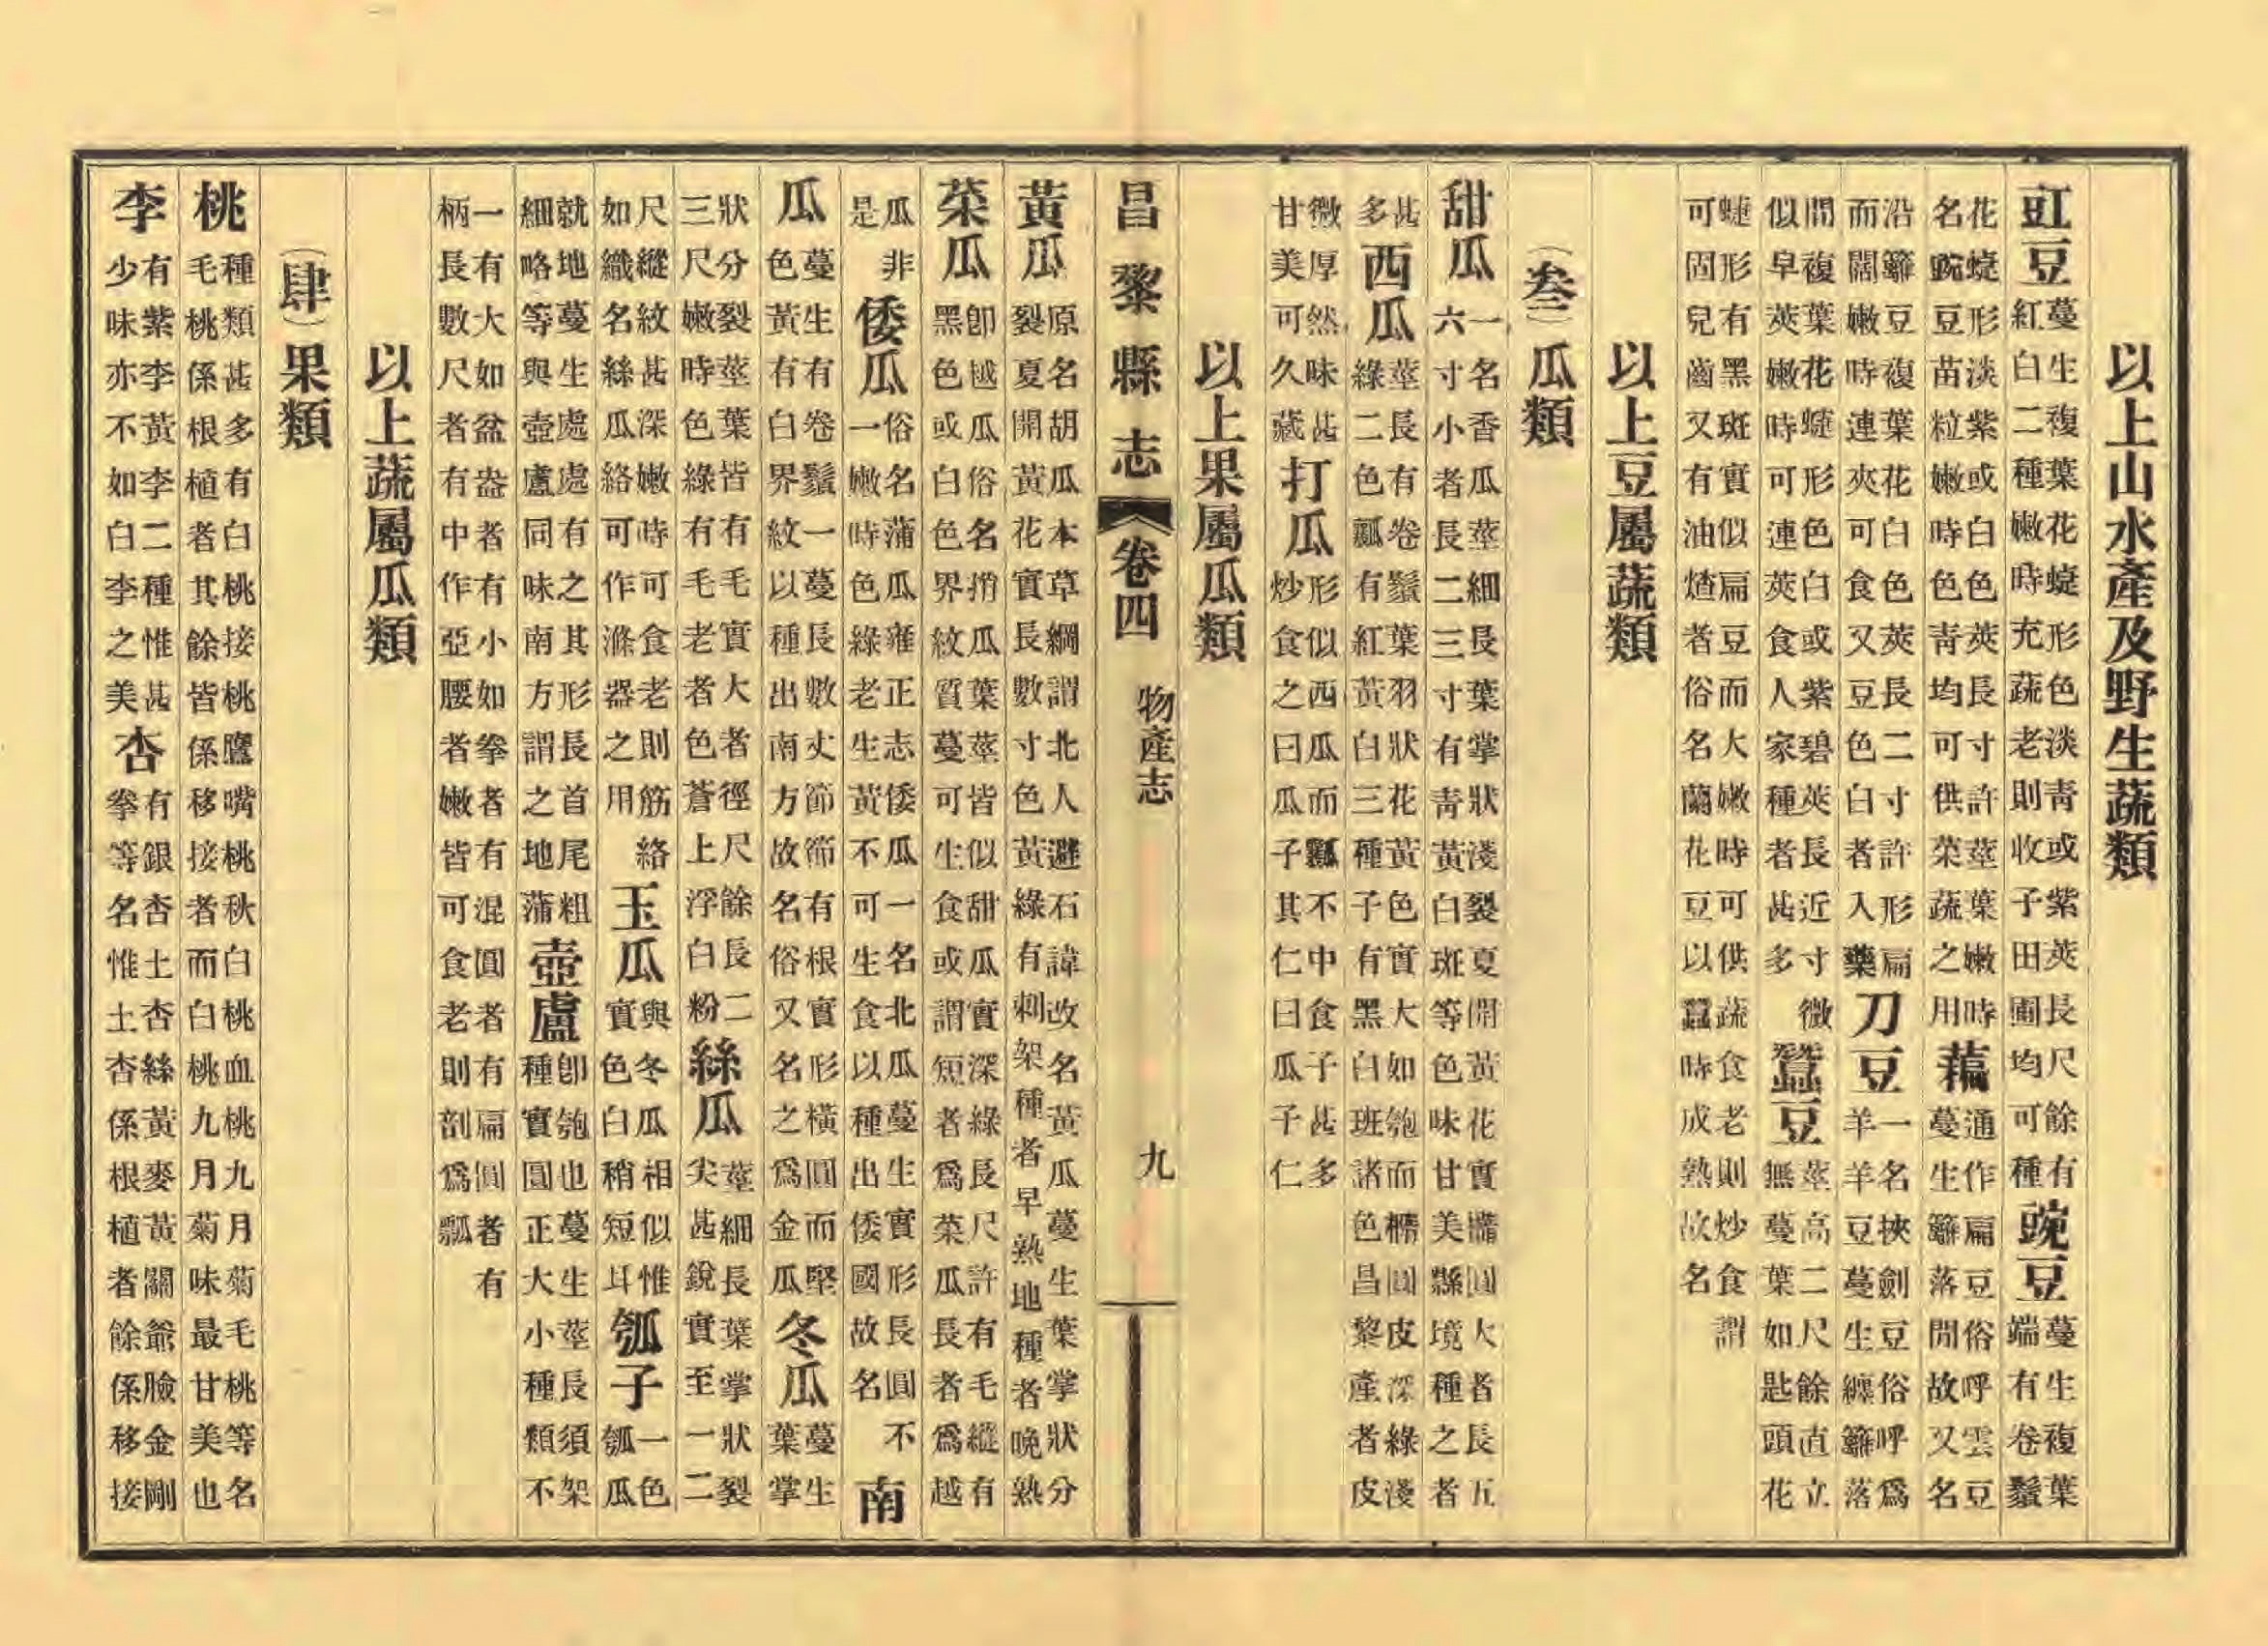 以上山水產及野生蔬類
豇豆蔓生複葉花蜨形色淡靑或紫莢長尺餘有紅白二種嫩時充蔬老則收子田圃均可種豌豆蔓生複葉端有卷鬚
花蜨形淡紫或白色莢長寸許莖葉嫩時名豌豆苗粒嫩時色靑均可供菜蔬之用藊通作扁豆俗呼雲豆蔓生籬落閒故又名
沿籬豆複葉花白色莢長二寸許形扁而闊嫩時連夾可食又豆色白者入藥刀豆一名挾劍豆俗呼爲羊羊豆蔓生纏籬落
間複葉花蜨形色白或紫碧莢長近寸微似早莢嫩時可連莢食人家種者甚多蠶豆莖高二尺餘直立無蔓葉如匙頭花
蜨形有黑斑實似扁豆而大嫩時可供蔬食老則炒食謂可固兒齒又有油煠者俗名蘭花豆以蠶時成熟故名
以上豆屬蔬類
(叁)瓜類
甜瓜一名香瓜莖細長葉掌狀淺裂夏開黃花實橢圓大者長五六寸小者長二三寸有靑黃白斑等色味甘美縣境種之者
甚多西瓜莖長有卷鬚葉羽狀花黃色實大如匏而橢圓皮深綠淺綠二色瓤有紅黃白三種子有黑白班諸色昌黎產者皮
微厚然味甚甘美可久藏打瓜形似西瓜而瓤不中食子甚多炒食之曰瓜子其仁曰瓜子仁
以上果屬瓜類
昌黎縣志 卷四 物產志 九
黃瓜原名胡瓜本草綱謂北人避石諱改名黃瓜蔓生葉掌狀分裂夏開黃花實長數寸色黃綠有刺架種者早熟地種者晚熟
菜瓜卽越瓜俗名揹瓜葉莖皆似甜瓜實深綠長尺許有毛縱有黑色或白色界紋質蔓可生食或謂短者爲菜瓜長者爲越
瓜非是倭瓜俗名蒲瓜雍正志倭瓜一名北瓜蔓生實形長圓不一嫩時色綠老生黃不可生食以種出倭國故名南
瓜蔓生有卷鬚一蔓長數丈節節有根實形橫圓而堅色黃有白界紋以種出南方故名俗又名之爲金瓜冬瓜蔓生葉掌
狀分裂莖葉皆有毛實大者徑尺餘長二三尺嫩時色綠有毛老者色蒼上浮白粉絲瓜莖細長葉掌狀裂尖甚銳實至一二
尺縱紋甚深嫩時可食老則筋絡如織名絲瓜絡可作滌器之用玉瓜與冬瓜相似惟實色白稍短耳瓠子一色瓠瓜
就地蔓生處處有之其形長首尾粗細略等與壺盧同味南方謂之地蒲壺盧卽匏也蔓生莖長須架種實圓正大小種類不
一有大如盆盎者有小如拳者有混圓者有扁圓者有柄長數尺者有中作亞腰者嫩皆可食老則剖爲瓢
以上蔬屬瓜類
(肆)果類
桃種類甚多有白桃接桃鷹嘴桃秋白桃血桃九月菊毛桃等名毛桃係根植者其餘皆係移接者而白桃九月菊味最甘美也
李有紫李黃李二種惟甚少味亦不如白李之美杏有銀杏土杏絲黃麥黃關爺臉金剛拳等名惟土杏係根植者餘係移接